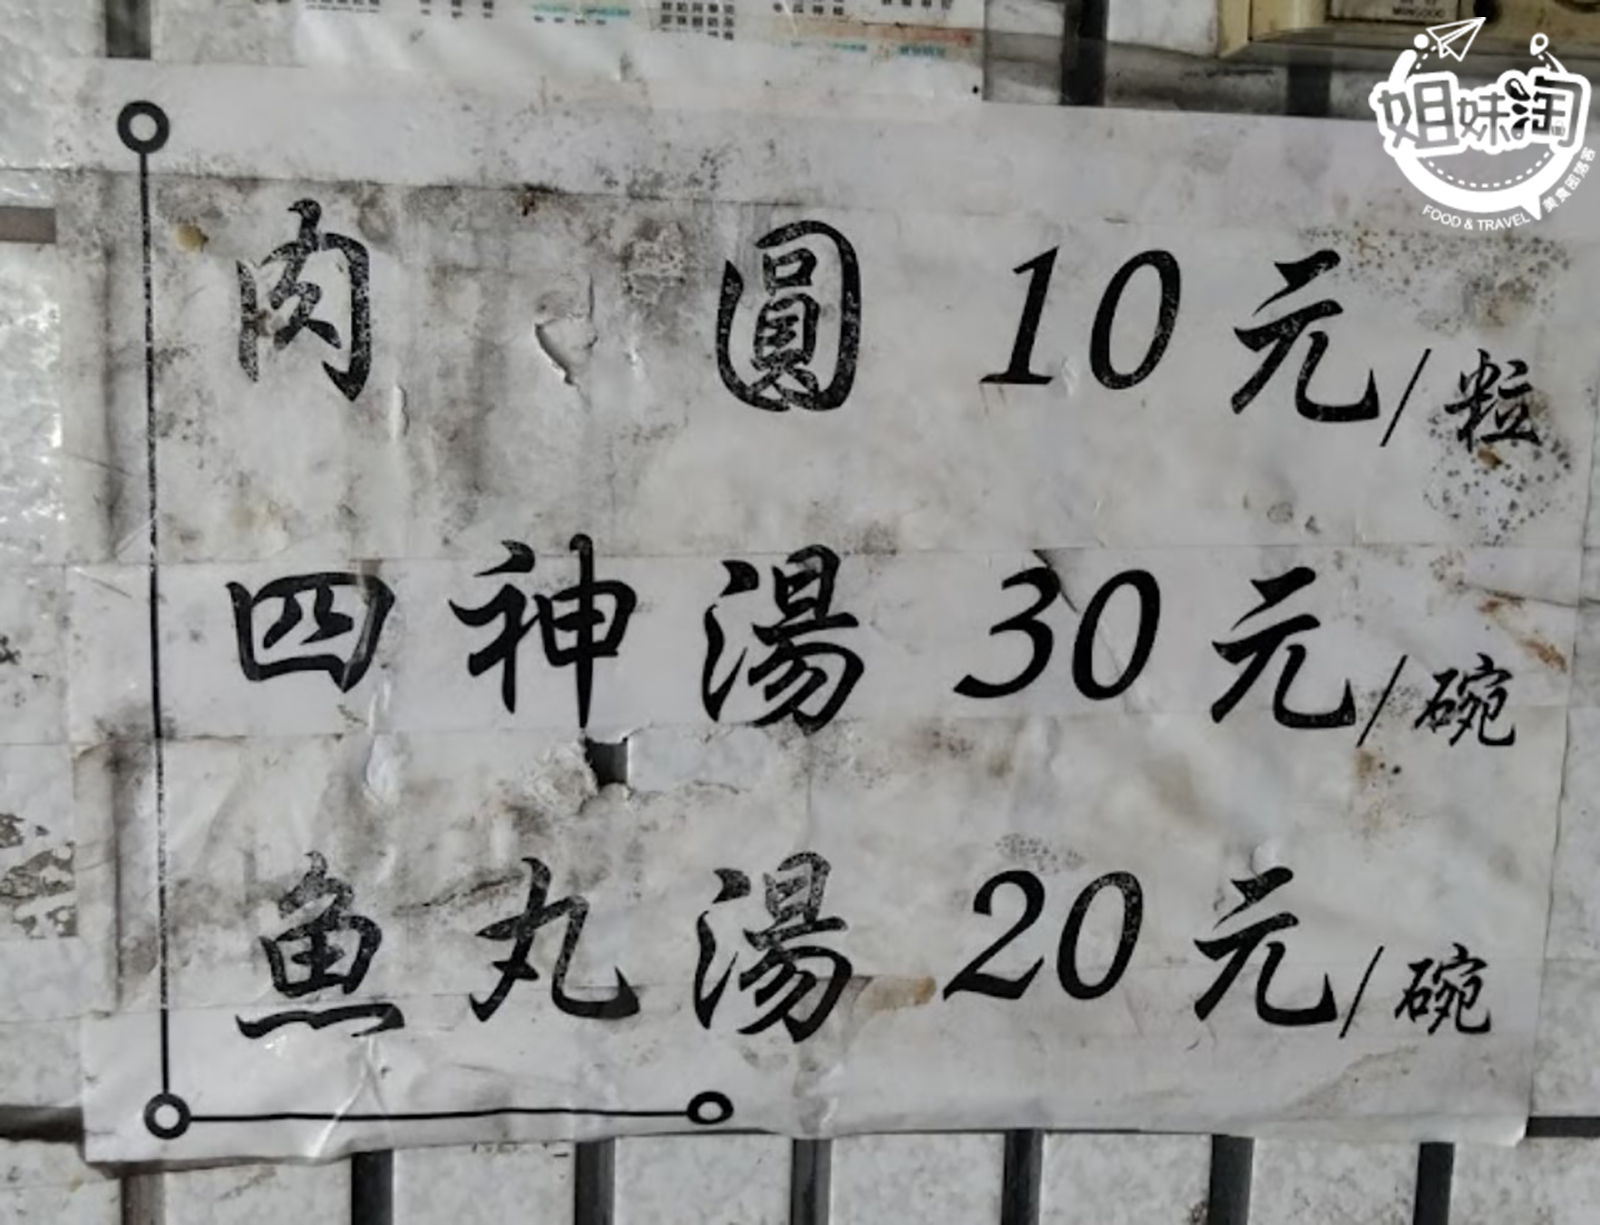 姐妹淘
美食部落客
FOOD & TRAVEL
肉圓 10元/粒
四神湯 30元/碗
魚丸湯 20元/碗